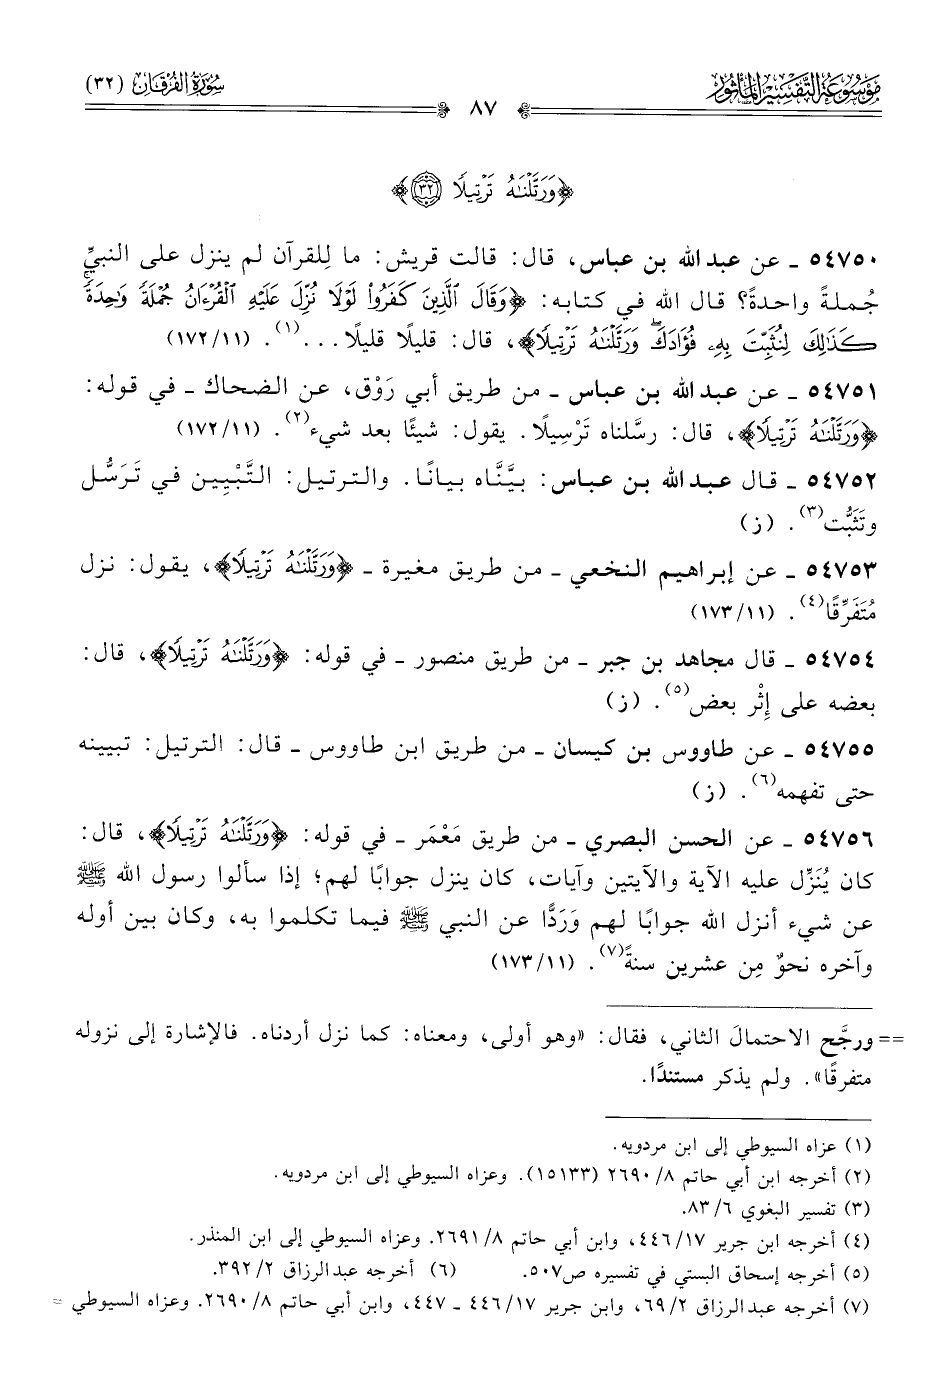 موسوعة التفسير المأثور
سورة الفرقان (٣٢)
٨٧
﴿وَرَتَّلْنَٰهُ تَرْتِيلًا ٣٢﴾
٥٤٧٥٠ ـ عن عبد الله بن عباس، قال: قالت قريش: ما لِلقرآن لم ينزل على النبيِّ
جُملةً واحدةً؟ قال الله في كتابه: ﴿وَقَالَ ٱلَّذِينَ كَفَرُوا۟ لَوْلَا نُزِّلَ عَلَيْهِ ٱلْقُرْءَانُ جُمْلَةً وَٰحِدَةً
كَذَٰلِكَ لِنُثَبِّتَ بِهِۦ فُؤَادَكَ ۖ وَرَتَّلْنَٰهُ تَرْتِيلًا﴾، قال: قليلًا قليلًا...(١). (١٧٢/١١)
٥٤٧٥١ ـ عن عبد الله بن عباس ـ من طريق أبي رَوْق، عن الضحاك ـ في قوله:
﴿وَرَتَّلْنَٰهُ تَرْتِيلًا﴾، قال: رسَّلناه تَرْسِيلًا. يقول: شيئًا بعد شيء(٢). (١٧٢/١١)
٥٤٧٥٢ ـ قال عبد الله بن عباس: بيَّنَّاه بيانًا. والترتيل: التَّبْيِين في تَرَسُّل
وتَثَبُّت(٣). (ز)
٥٤٧٥٣ ـ عن إبراهيم النخعي ـ من طريق مغيرة ـ ﴿وَرَتَّلْنَٰهُ تَرْتِيلًا﴾، يقول: نزل
مُتَفَرِّقًا(٤). (١٧٣/١١)
٥٤٧٥٤ ـ قال مجاهد بن جبر ـ من طريق منصور ـ في قوله: ﴿وَرَتَّلْنَٰهُ تَرْتِيلًا﴾، قال:
بعضه على إِثْر بعض(٥). (ز)
٥٤٧٥٥ ـ عن طاووس بن كيسان ـ من طريق ابن طاووس ـ قال: الترتيل: تبيينه
حتى تفهمه(٦). (ز)
٥٤٧٥٦ ـ عن الحسن البصري ـ من طريق مَعْمَر ـ في قوله: ﴿وَرَتَّلْنَٰهُ تَرْتِيلًا﴾، قال:
كان يُنَزِّل عليه الآية والآيتين وآيات، كان ينزل جوابًا لهم؛ إذا سألوا رسول الله ﷺ
عن شيء أنزل الله جوابًا لهم وَرَدًّا عن النبي ﷺ فيما تكلموا به، وكان بين أوله
وآخره نحوٌ مِن عشرين سنةً(٧). (١٧٣/١١)
== ورجَّح الاحتمالَ الثاني، فقال: «وهو أولى، ومعناه: كما نزل أردناه. فالإشارة إلى نزوله
متفرقًا». ولم يذكر مستندًا.
(١) عزاه السيوطي إلى ابن مردويه.
(٢) أخرجه ابن أبي حاتم ٢٦٩٠/٨ (١٥١٣٣). وعزاه السيوطي إلى ابن مردويه.
(٣) تفسير البغوي ٨٣/٦.
(٤) أخرجه ابن جرير ٤٤٦/١٧، وابن أبي حاتم ٢٦٩١/٨. وعزاه السيوطي إلى ابن المنذر.
(٥) أخرجه إسحاق البستي في تفسيره ص٥٠٧. (٦) أخرجه عبد الرزاق ٣٩٢/٢.
(٧) أخرجه عبد الرزاق ٦٩/٢، وابن جرير ٤٤٦/١٧ ـ ٤٤٧، وابن أبي حاتم ٢٦٩٠/٨. وعزاه السيوطي =